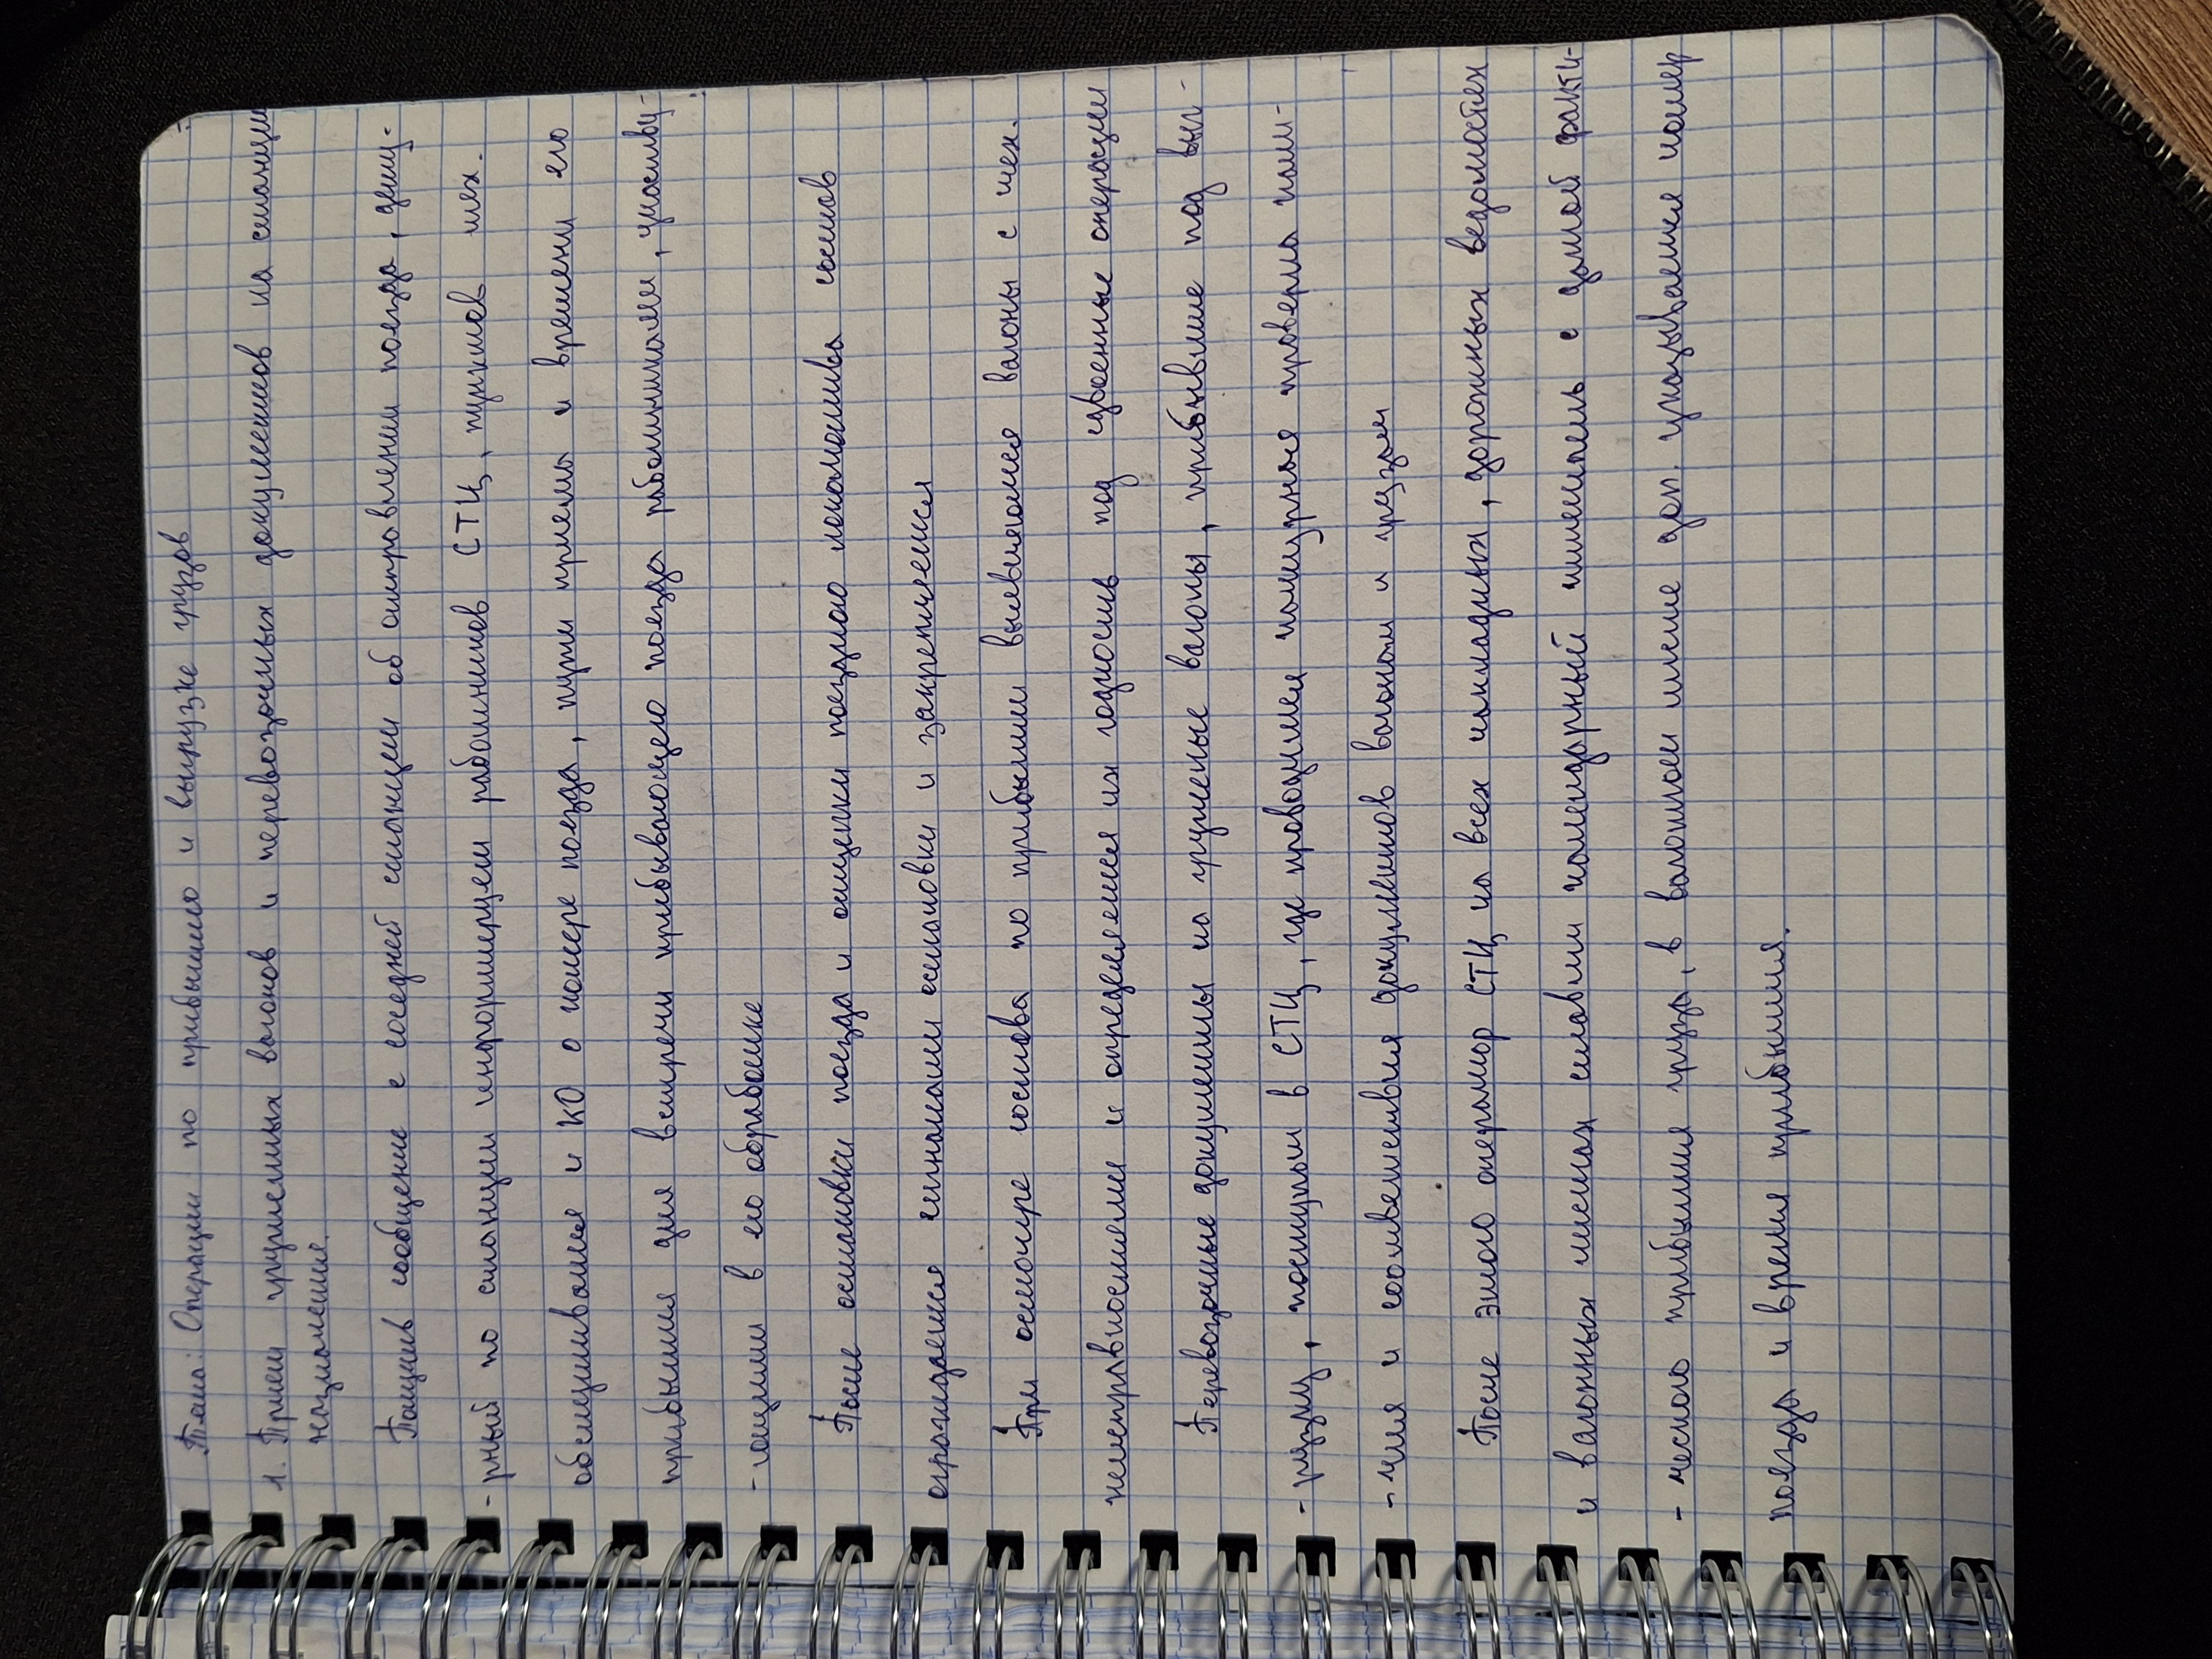 Тема: Операции по прибытию и выгрузке грузов
1. Прием груженых вагонов и перевозочных документов на станции
назначения.
Получив сообщение с соседней станции об отправлении поезда, дежу-
-рный по станции информирует работников СТЦ, пунктов тех.
обслуживания и КО о номере поезда, пути приема и времени его
прибытия для встречи прибывающего поезда работниками, участву-
-ющими в его обработке
После остановки поезда и отцепки поездного локомотива состав
ограждается сигналами остановки и закрепляется
При осмотре состава по прибытии выявляются вагоны с тех.
неисправностями и определяется их годность под сдвоенные операции
Перевозочные документы на груженые вагоны, прибывшие под выг-
-рузку, поступают в СТЦ, где проводится натурная проверка нали-
-чия и соответствия документов вагонам и грузам
После этого оператор СТЦ на всех накладных, дорожных ведомостях
и вагонных листах ставит календарный штемпель с датой факти-
-ческого прибытия груза, в вагонном листе доп. указывается номер
поезда и время прибытия.